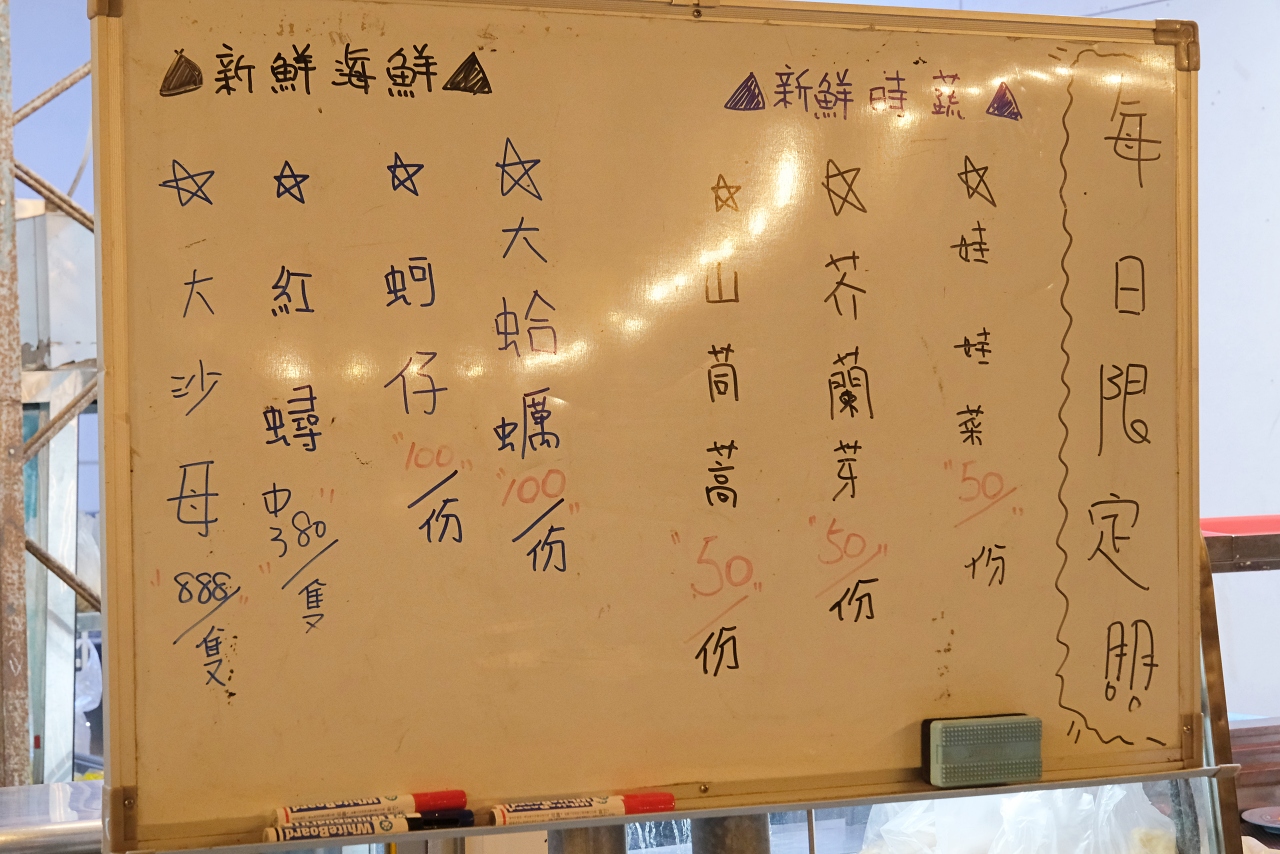 每日限定
▲新鮮時蔬▲
☆娃娃菜"50"/份
☆芥蘭芽"50"/份
☆山茼蒿"50"/份
▲新鮮海鮮▲
☆大蛤蠣"100"/份
☆蚵仔"100"/份
☆紅蟳中"380"/隻
☆大沙母"888"/隻
WhiteBoard
WhiteBoard
WhiteBoard